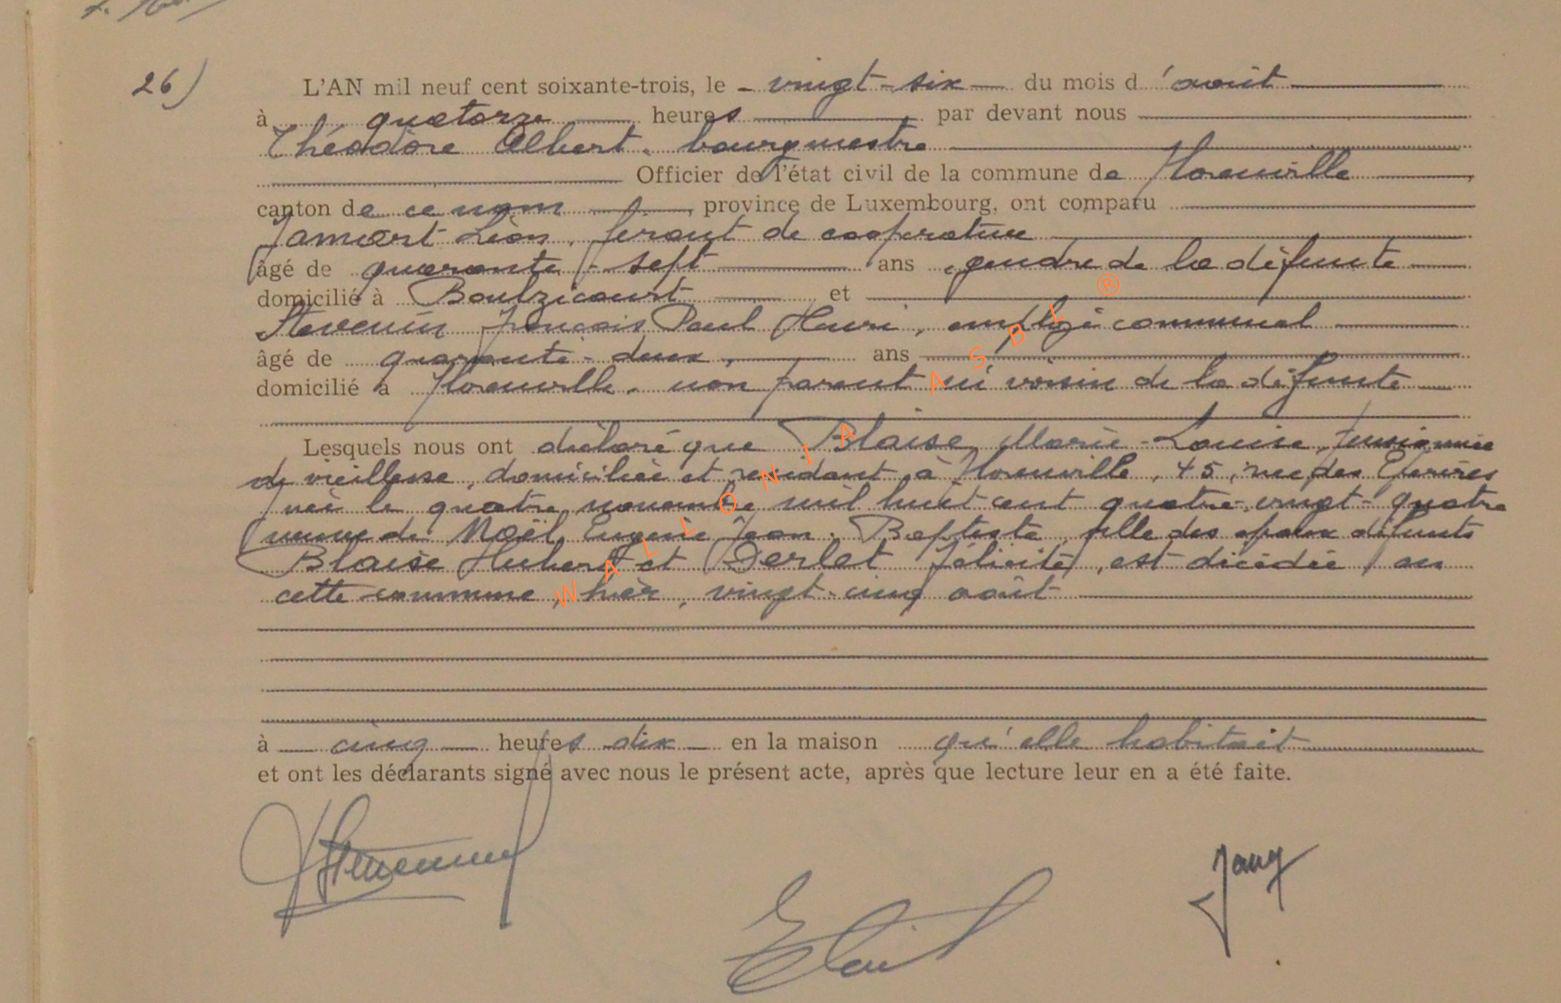 26)
L'AN mil neuf cent soixante-trois, le - vingt-six du mois d'août
à quatorze heures par devant nous
Théodore Albert, bourgmestre
Officier de l'état civil de la commune de Florenville
canton de ce nom, province de Luxembourg, ont comparu
Jamart Léon, gérant de coopérative
âgé de quarante-sept ans, gendre de la défunte
domicilié à Boulzicourt et
Stevenin François Paul Henri, employé communal
âgé de quarante-deux, ans
domicilié à Florenville, non parent ni voisin de la défunte
Lesquels nous ont déclaré que Blaise, Marie-Louise, pensionnée
de vieillesse, domiciliée et résidant à Florenville, 45, rue des
née le quatre novembre mil huit cent quatre-vingt-quatre
veuve de Noël, Eugène Jean-Baptiste, fille des époux défunts
Blaise Hubert et Derlet Félicité, est décédée en
cette commune, hier, vingt-cinq août
à cinq heures dix en la maison qu'elle habitait
et ont les déclarants signé avec nous le présent acte, après que lecture leur en a été faite.
WALLONIA ASBL ®